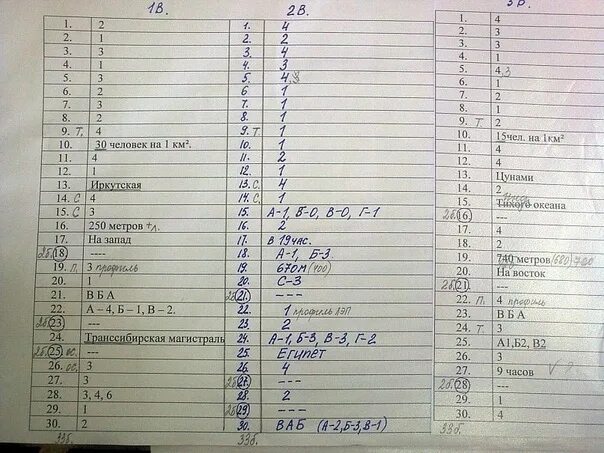 1В.
1. 2
2. 1
3. 3
4. 1
5. 3
6. 2
7. 3
8. 2
9. Т. 4
10. 30 человек на 1 км².
11. 4
12. 1
13. Иркутская
14. С 4
15. С 3
16. 250 метров + л.
17. На запад
2б. 18. ----
19. П. 3 профиль
20. 1
21. В Б А
22. А – 4, Б – 1, В – 2.
2б. 23. ---
24. Транссибирская магистраль
2б. 25. ос. ---
26. ос. 3
27. 3
28. 3, 4, 6
29. 1
30. 2
33б.
2В.
1. 4
2. 2
3. 4
4. 3
5. 4,3
6. 1
7. 1
8. 1
9. Т. 1
10. 1
11. 2
12. 1
13. С. 4
14. 1
15. А-1, Б-0, В-0, Г-1
16. 2
17. В 19час.
18. А-1, Б-3
19. 670м (700)
20. С-3
2б. 21. ---
22. 1 профиль
23. 2
24. А-1, Б-3, В-3, Г-2
25. Египет
26. 4
2б. 27. ---
28. 2
2б. 29. ---
30. ВАБ (А-2, Б-3, В-1)
33б.
3В.
1. 4
2. 3
3. 3
4. 1
5. 4,3
6. 1
7. 2
8. 1
9. Т 2
10. 15чел. на 1км²
11. 4
12. 1
13. Цунами
14. 1
15. Тихого океана
2б. 16. ---
17. 4
18. 2
19. 740 метров (680)
20. На восток
2б. 21. ---
22. П. 4 профиль
23. В Б А
24. Т. 3
25. А1,Б2, В2
26. 3
27. 9 часов
2б. 28. ---
29. 1
30. 4
33б.